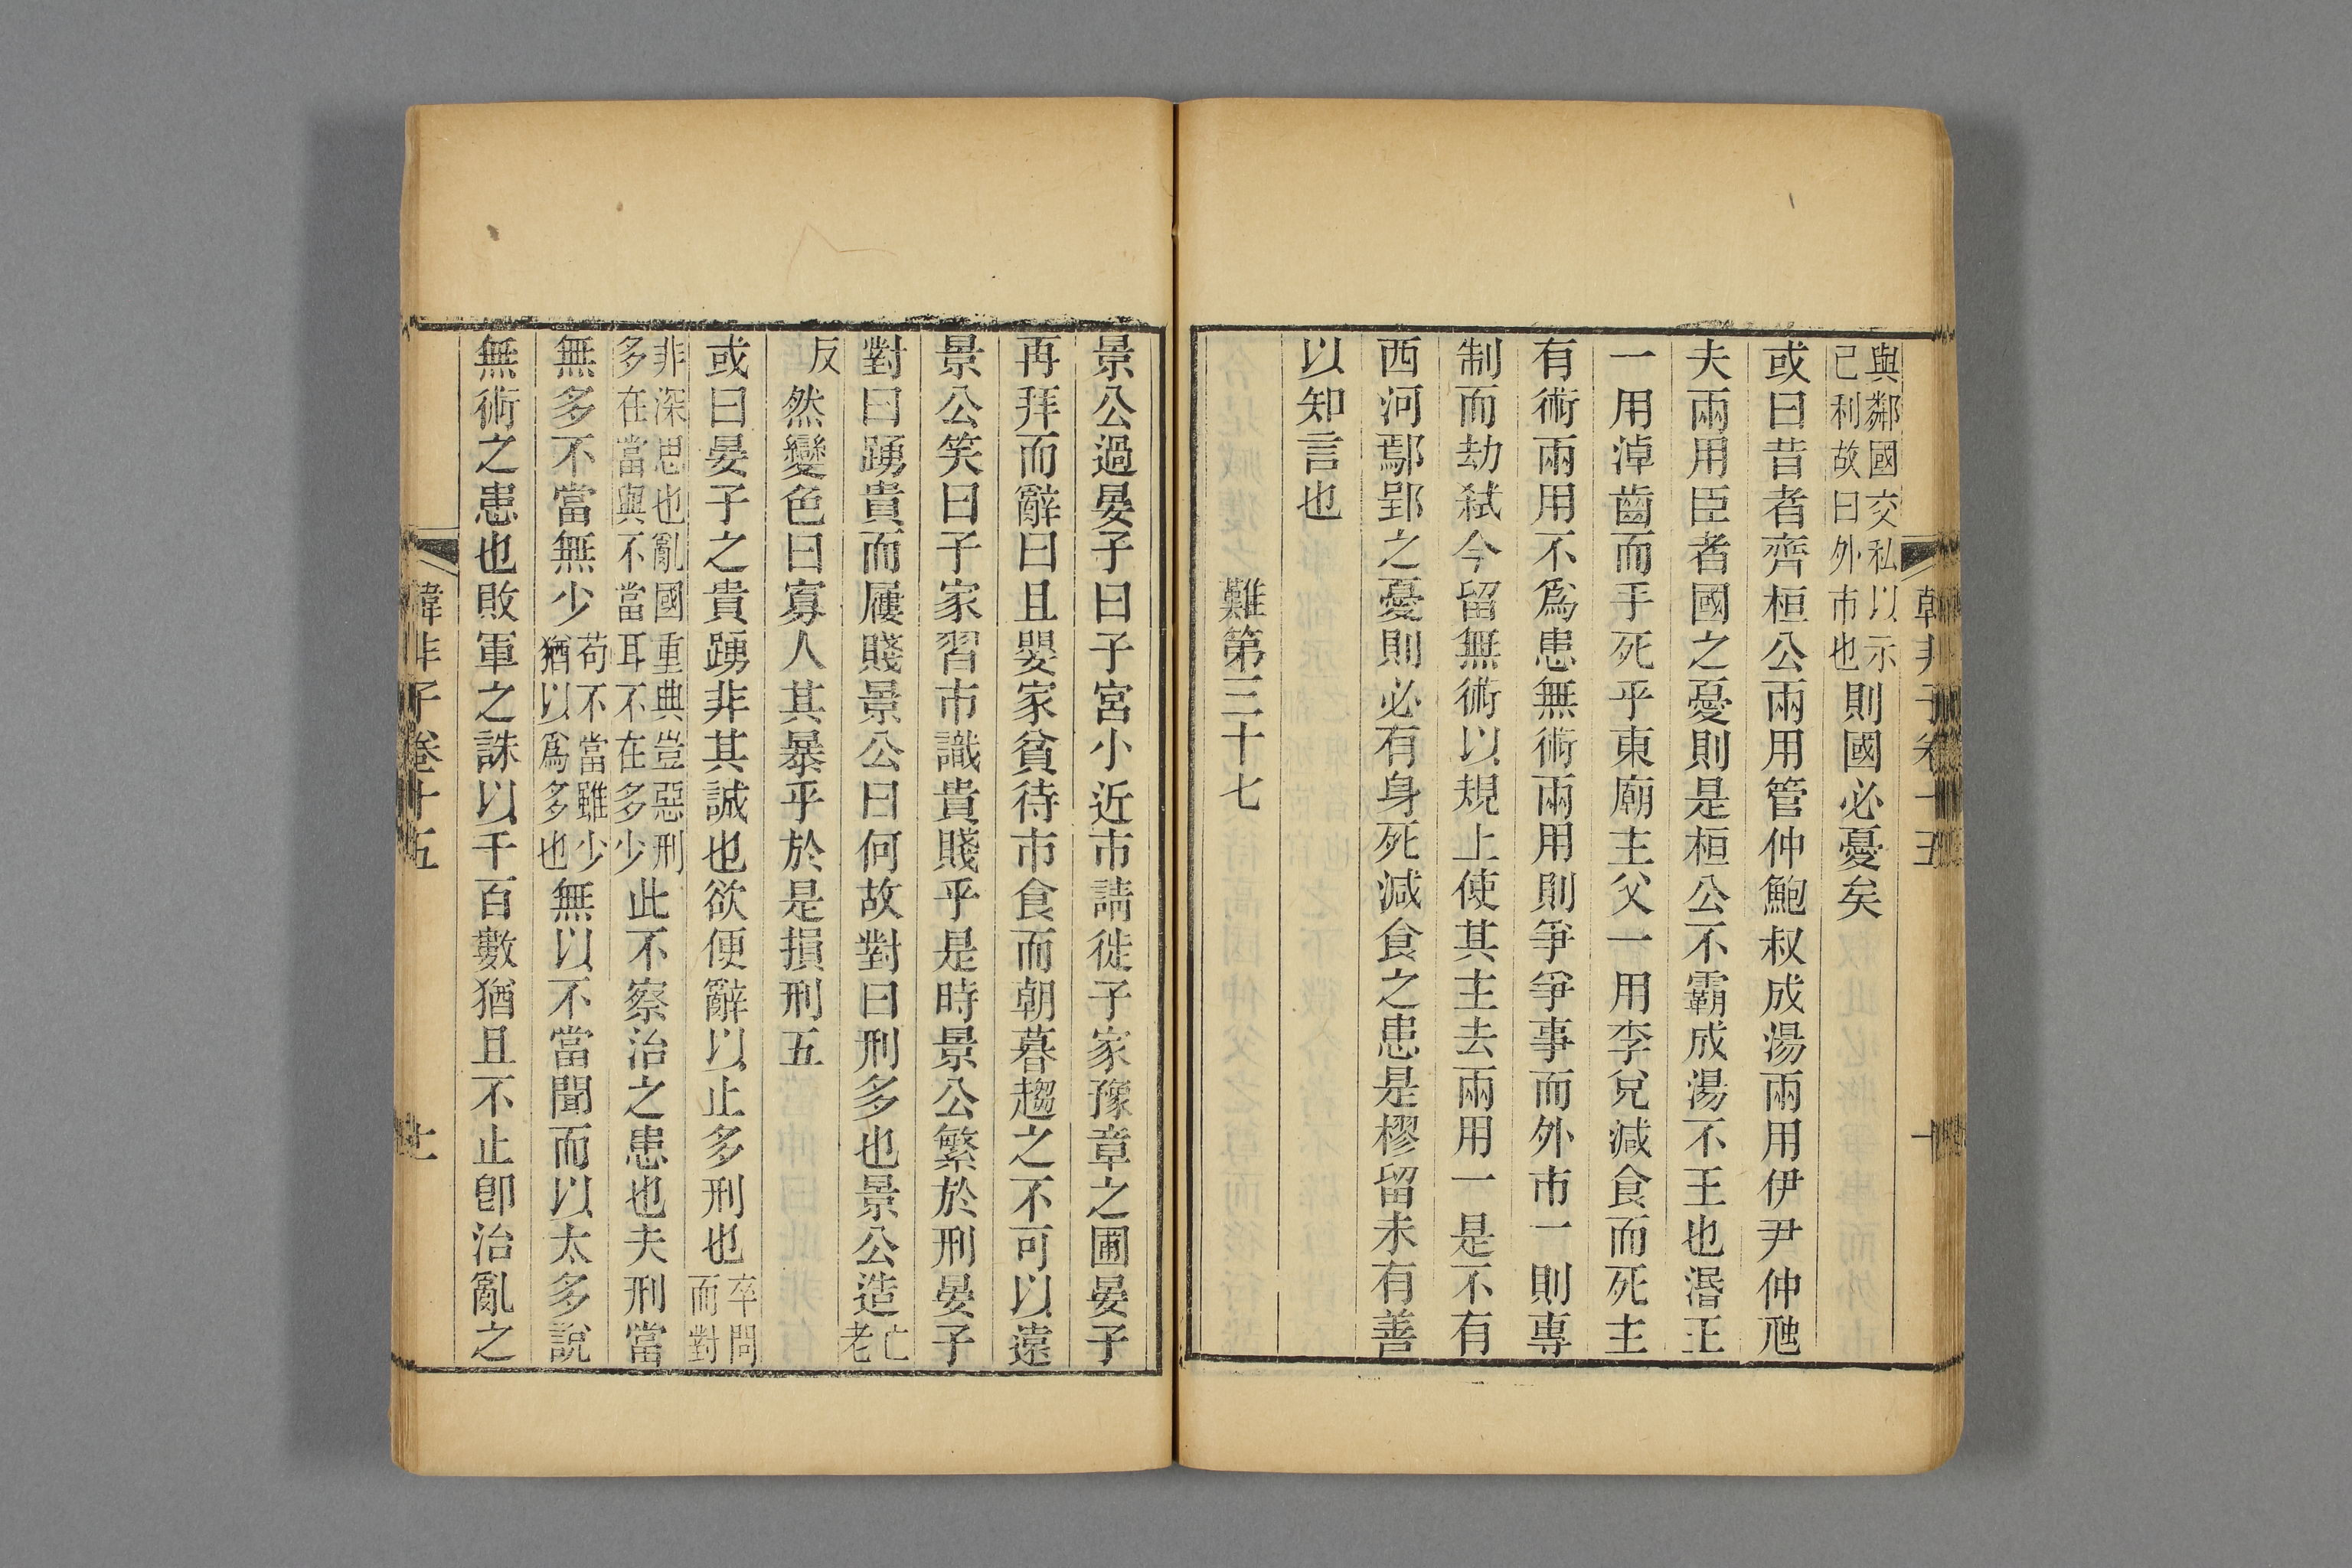 韓非子卷十五
十
與鄰國交私以示
己利故曰外市也則國必憂矣
或曰昔者齊桓公兩用管仲鮑叔成湯兩用伊尹仲虺
夫兩用臣者國之憂則是桓公不霸成湯不王也湣王
一用淖齒而手死乎東廟主父一用李兌減食而死主
有術兩用不爲患無術兩用則爭爭事而外市一則專
制而劫弑今留無術以規上使其主去兩用一是不有
西河鄢郢之憂則必有身死減食之患是樛留未有善
以知言也
難第三十七
景公過晏子曰子宮小近市請徙子家豫章之圃晏子
再拜而辭曰且嬰家貧待市食而朝暮趨之不可以遠
景公笑曰子家習市識貴賤乎是時景公繁於刑晏子
對曰踴貴而屨賤景公曰何故對曰刑多也景公造亡老
反然變色曰寡人其暴乎於是損刑五
或曰晏子之貴踴非其誠也欲便辭以止多刑也卒問
而對
非深思也亂國重典豈惡刑
多在當與不當耳不在多少此不察治之患也夫刑當
無多不當無少苟不當雖少
猶以爲多也無以不當聞而以太多說
無術之患也敗軍之誅以千百數猶且不止卽治亂之
韓非子卷十五